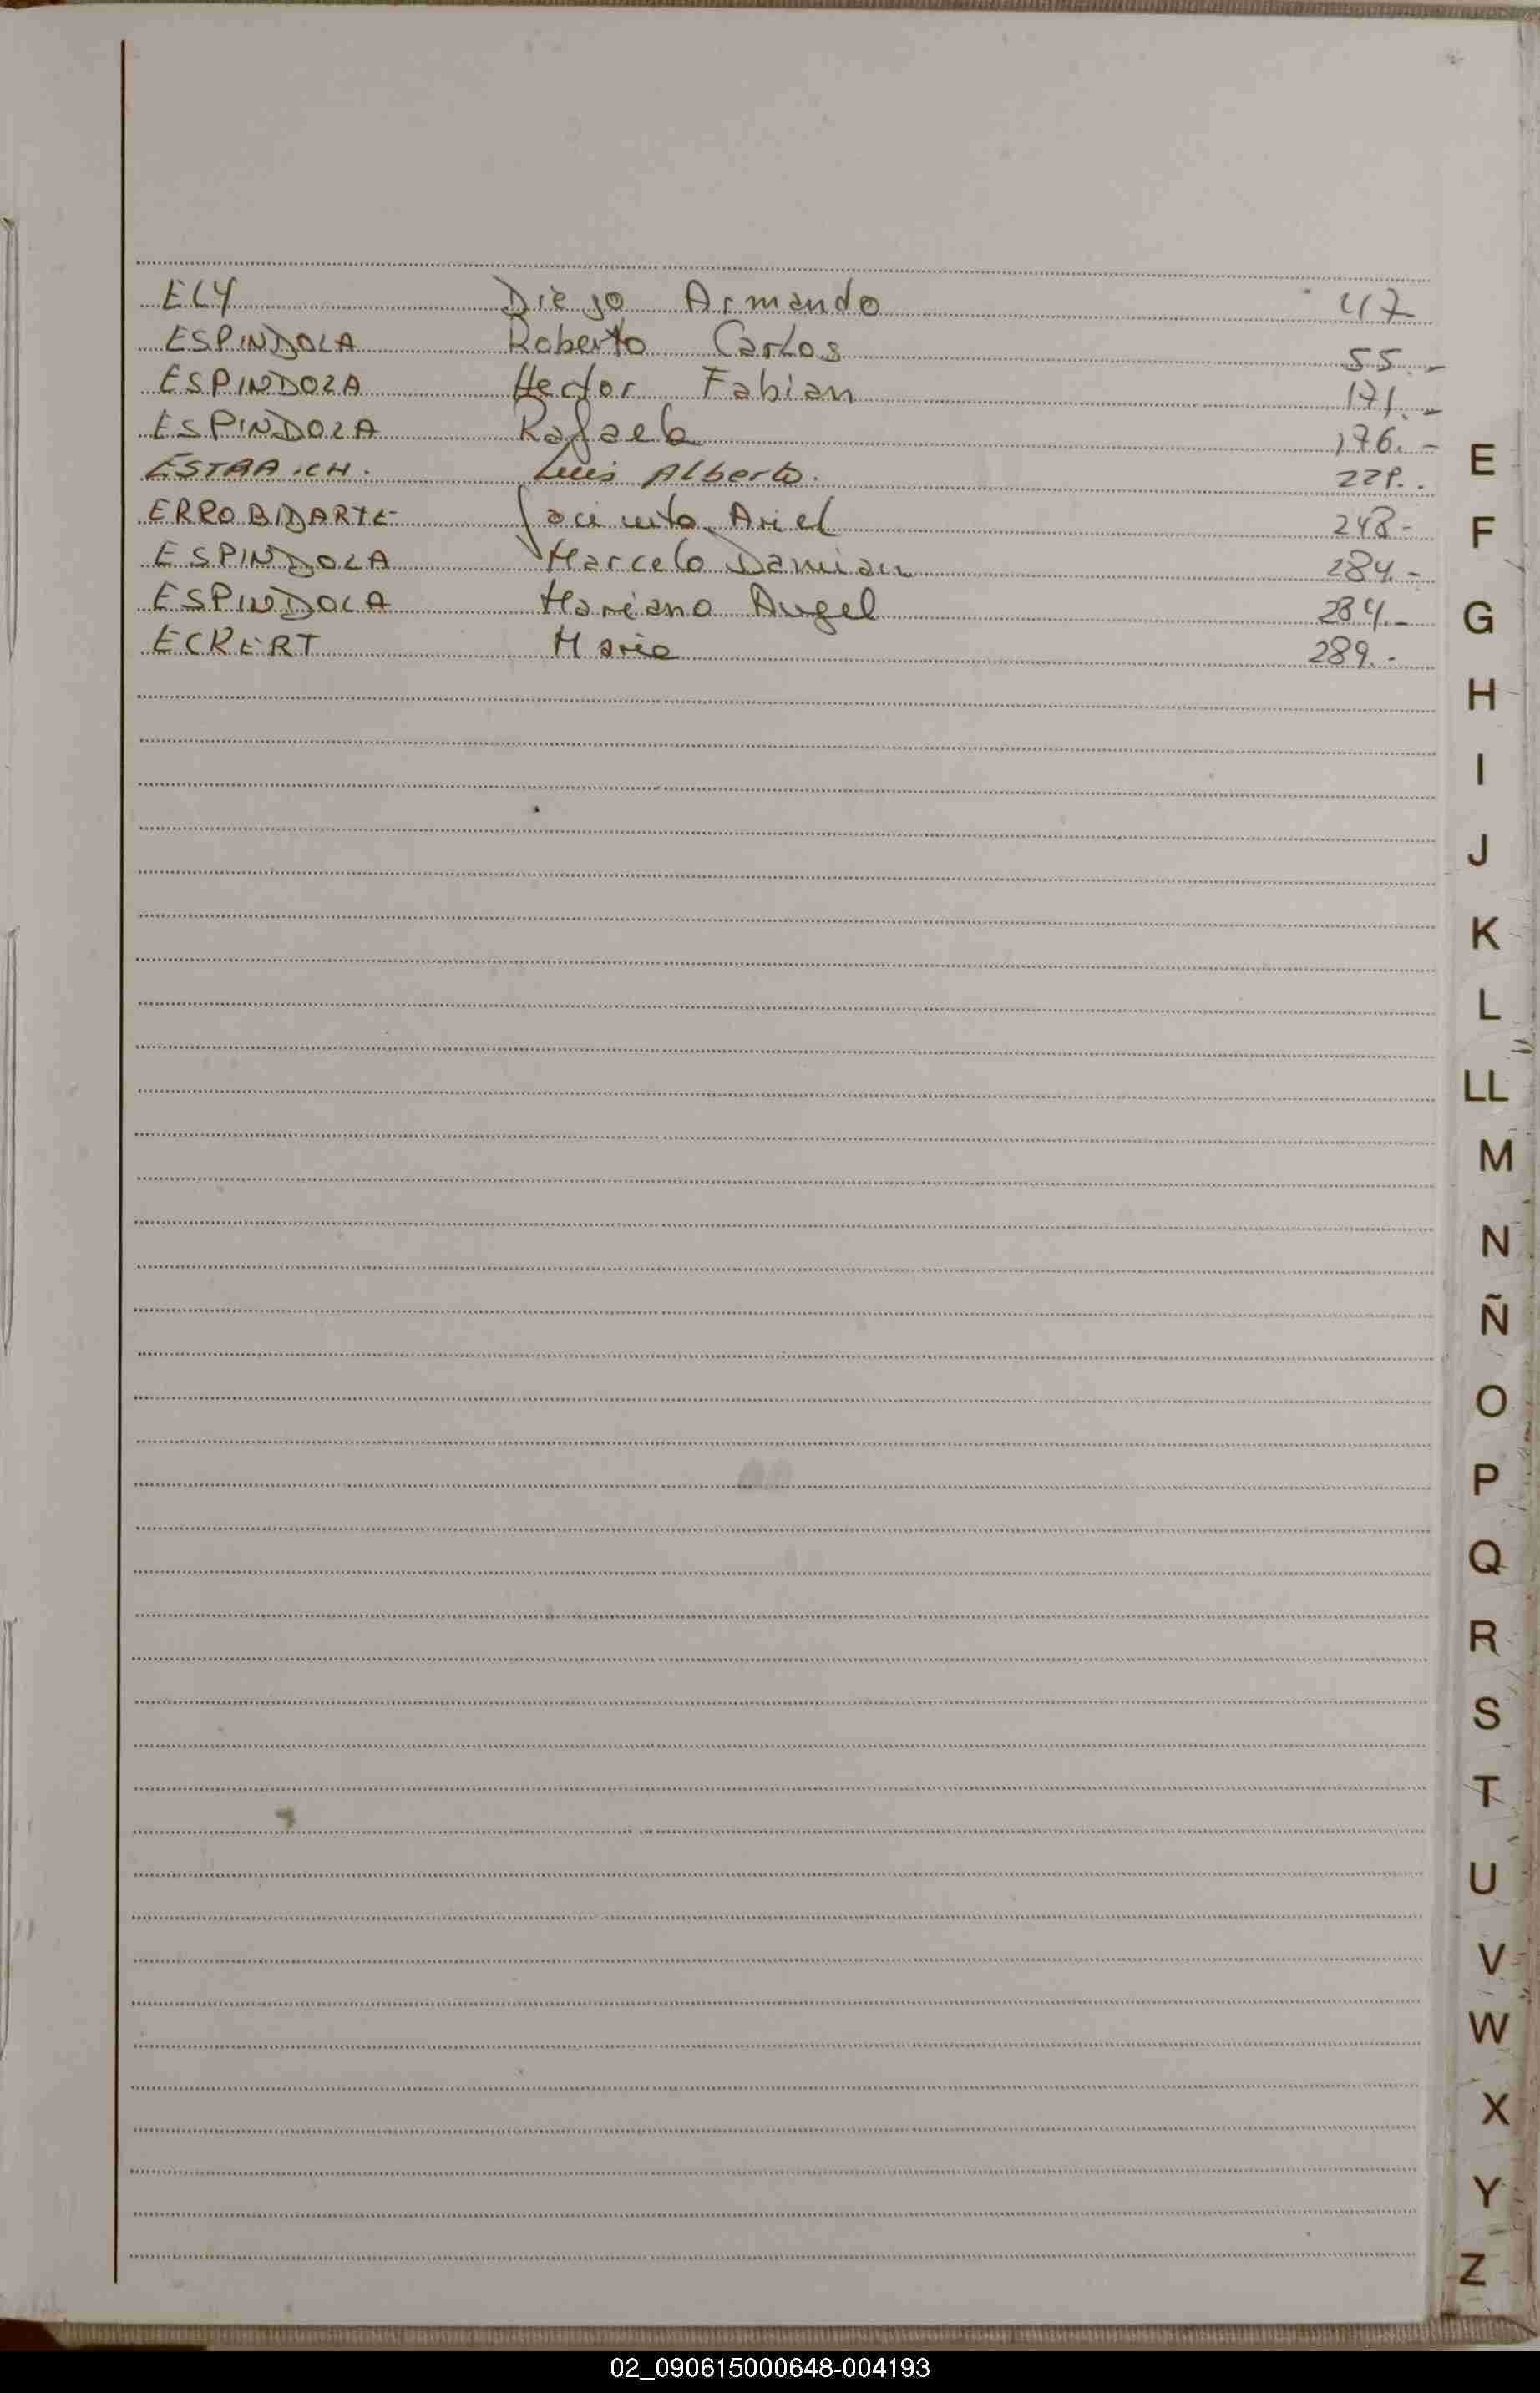 ELY Diego Armando 47
ESPINDOLA Roberto Carlos 55.-
ESPINDOLA Hector Fabian 171.-
ESPINDOLA Rafaela 176.-
ESTRAICH. Luis Alberto.
ERROBIDARTE Jacinto Ariel 248-
ESPINDOLA Marcelo Damian 284.-
ESPINDOLA Mariano Angel 284.-
ECKERT Maria 289.-
E
F
G
H
I
J
K
L
LL
M
N
Ñ
O
P
Q
R
S
T
U
V
W
X
Y
Z
02_090615000648-004193